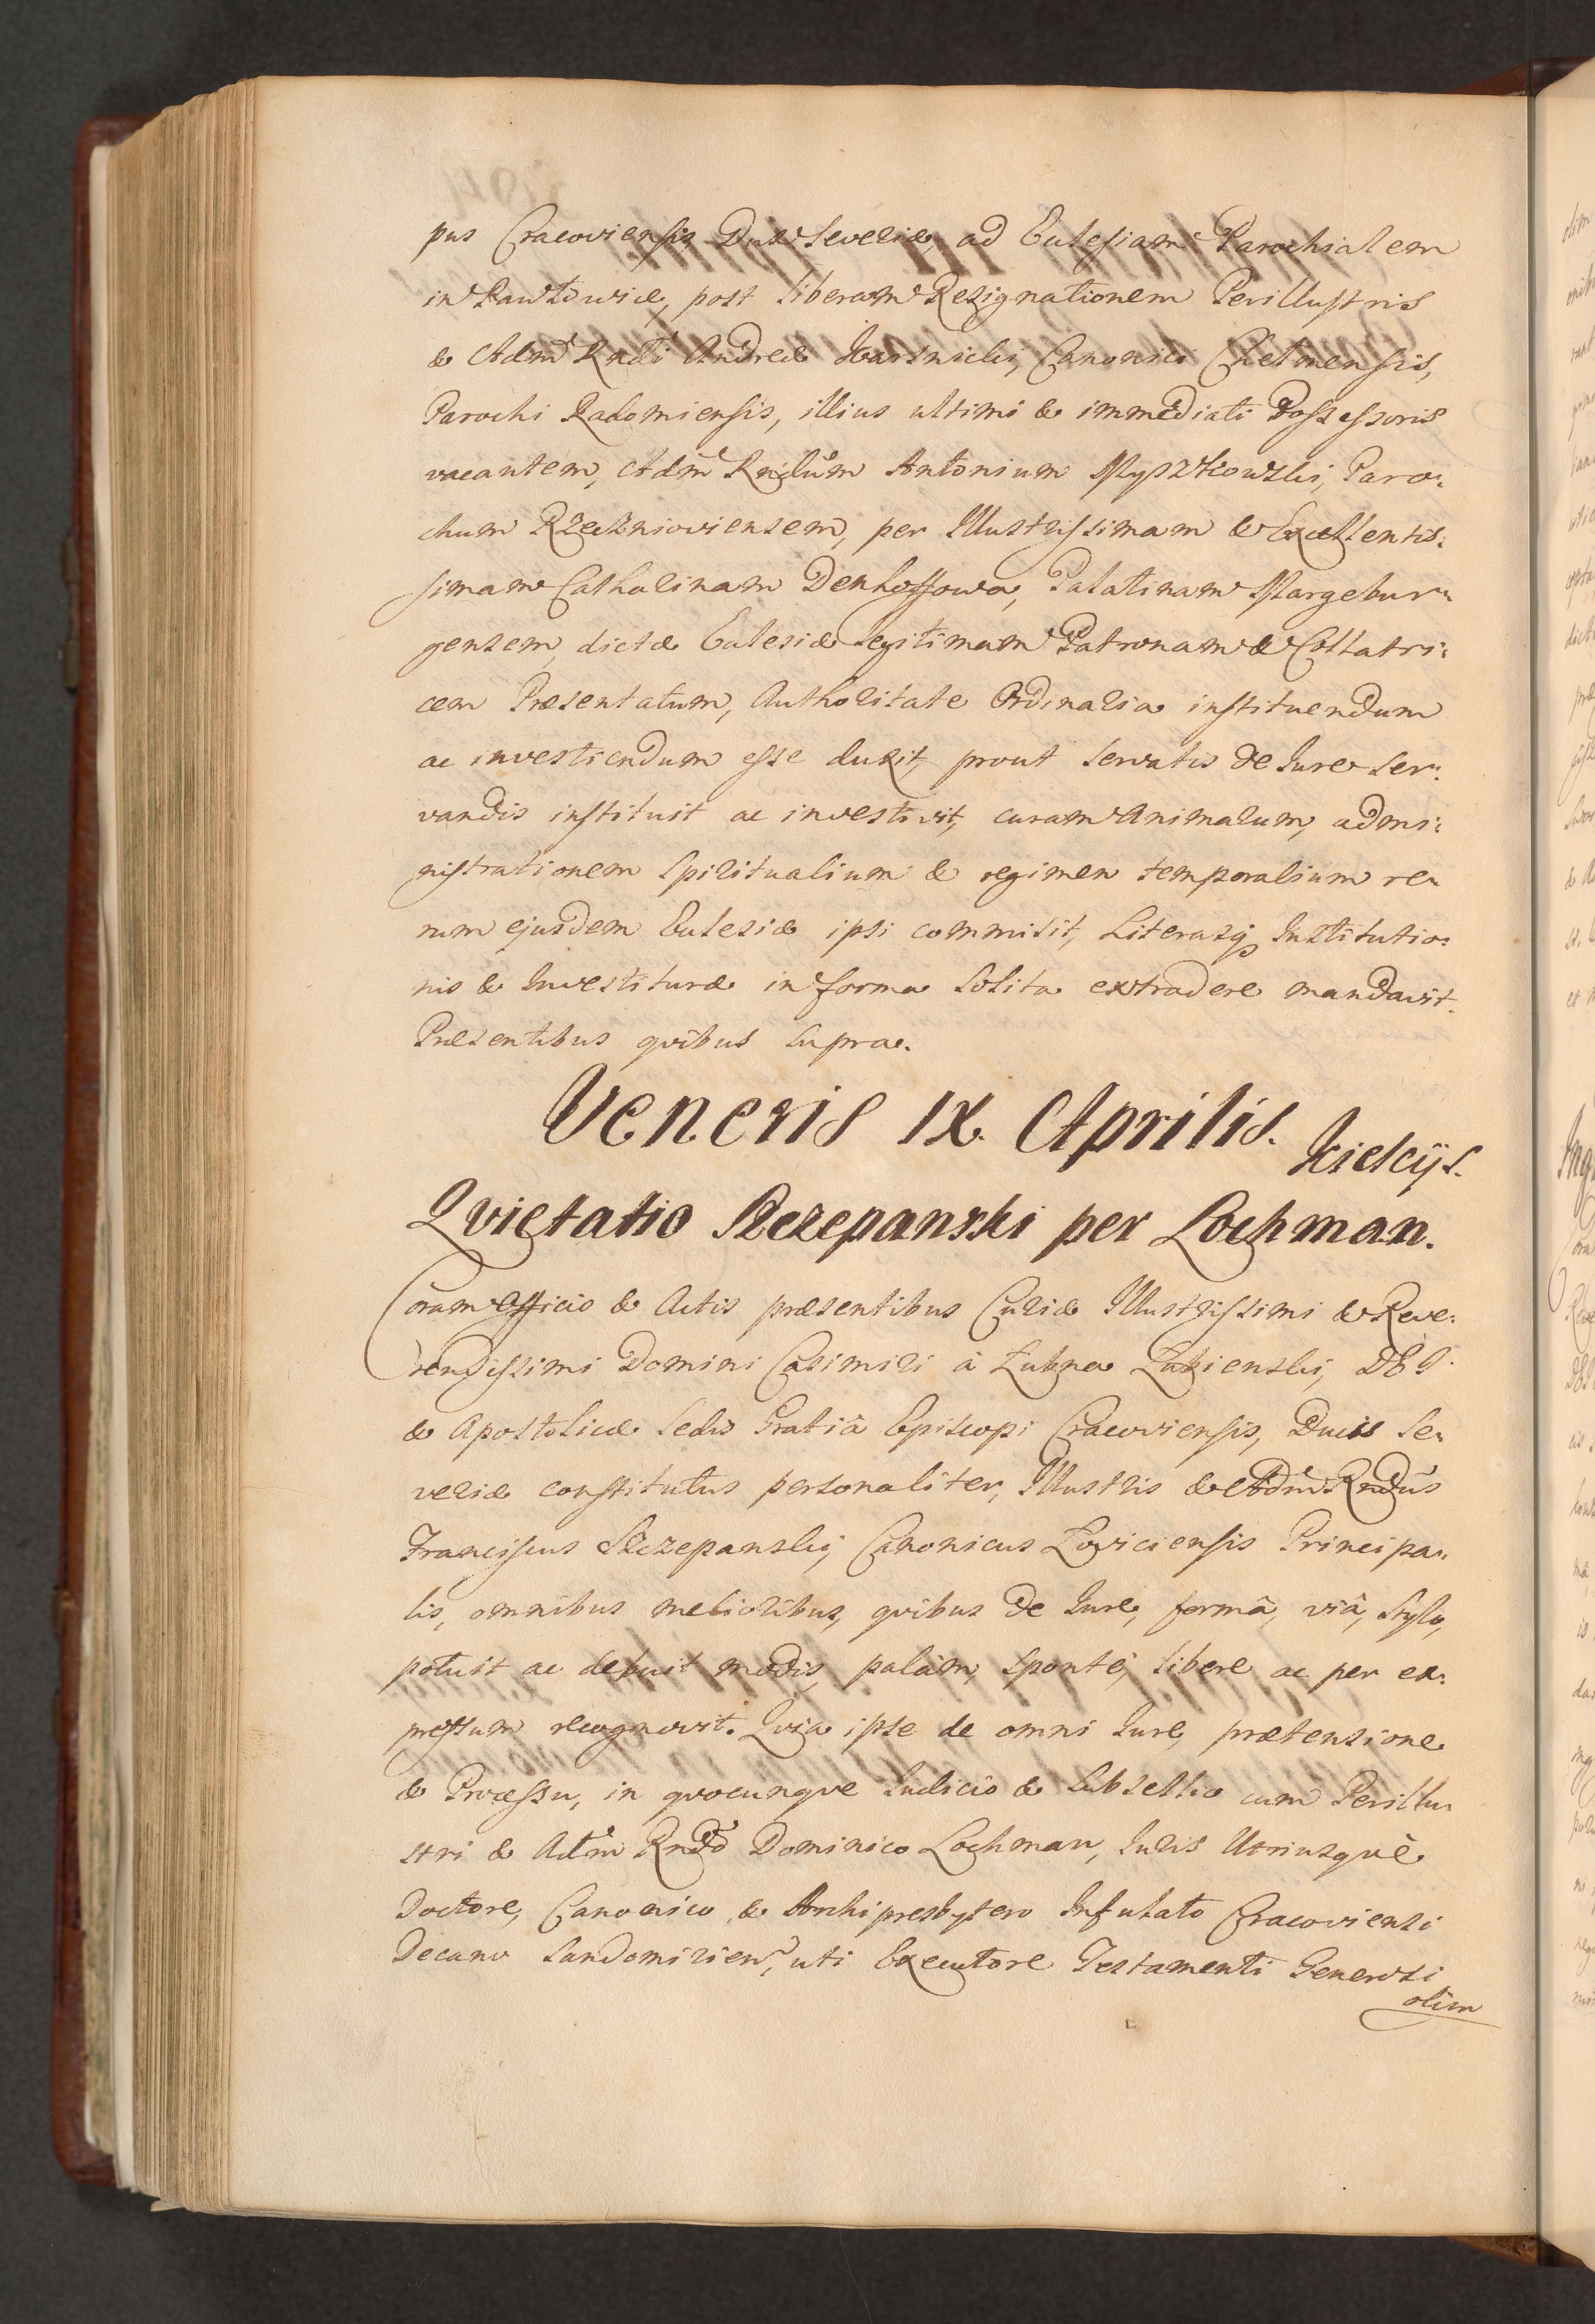 pus Cracoviensis Dux Severiæ, ad Ecclesiam Parochialem
in Pawłowice, post liberam Resignationem Perillustris
& Adm Rndi Andreæ Karsnicki, Canonici Chelmensis,
Parochi Radomiensis, illius ultimi & immediati Possessoris
vacantem, Adm Rndum Antonium Myszkowski, Paro-
chum Rzecznioviensem, per Illustrissimam & Excellentis-
simam Catharinam Denhoffowa, Palatinam Margebur-
gensem, dictæ Ecclesiæ legitimam Patronam & Collatri-
cem Præsentatum, Authoritate Ordinaria instituendum
ac investiendum esse duxit, prout servatis de Jure ser-
vandis instituit ac investivit, curam Animarum, admi-
nistrationem Spiritualium & regimen temporalium re-
rum ejusdem Ecclesiæ ipsi commisit, Literasq Institutio-
nis & Investituræ in forma solita extradere mandavit.
Præsentibus qvibus supra.
Veneris IX. Aprilis. Kielcÿs.
Qvietatio Szczepanski per Lochman.
Coram Officio & Actis præsentibus Curiæ Illustrissimi & Reve-
rendissimi Domini Casimiri à Łubna Łubienski, DEI
& Apostolicæ Sedis Gratiâ Episcopi Cracoviensis, Ducis Se-
veriæ constitutus personaliter, Illustris & Adm Rndus
Franciscus Szczepanski, Canonicus Łoviciensis Principa-
lis, omnibus melioribus, qvibus de Jure, formâ, viâ, stylo,
potuit ac debuit modis, palàm, spontè, libere ac per ex-
pressum recognovit. Qvia ipse de omni Jure, prætensione
& Processu, in qvocunqve Judicio & Subsellio cum Perillu-
stri & Adm Rndo Dominico Lochman, Juris Utriusqvè
Doctore, Canonico & Archipresbytero Infulato Cracoviensi
Decano Sandomirien, uti Executore Testamenti Generosi
olim